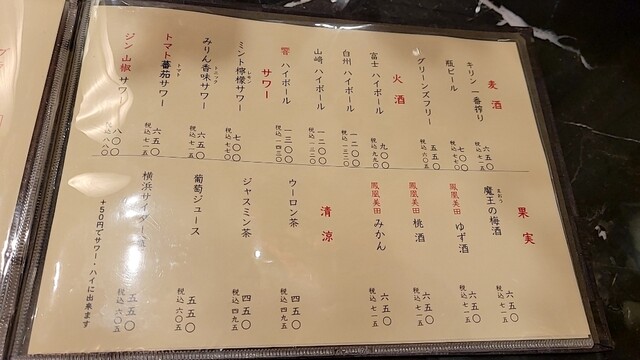 麦酒
キリン 一番搾り
六五〇
税込七一五
瓶ビール
七〇〇
税込七七〇
グリーンズフリー
五五〇
税込六〇五
火酒
富士 ハイボール
九〇〇
税込九九〇
白州 ハイボール
一二〇〇
税込一三二〇
山崎 ハイボール
一二〇〇
税込一三二〇
響 ハイボール
一三〇〇
税込一四三〇
サワー
ミント檸檬サワー
レモン
七〇〇
税込七七〇
みりん香味サワー
トニック
六五〇
税込七一五
トマト蕃茄サワー
トマト
六五〇
税込七一五
ジン 山椒 サワー
八〇〇
税込八八〇
果実
魔王の梅酒
まおう
六五〇
税込七一五
鳳凰美田 ゆず酒
六五〇
税込七一五
鳳凰美田 桃酒
六五〇
税込七一五
鳳凰美田 みかん
六五〇
税込七一五
清涼
ウーロン茶
四五〇
税込四九五
ジャスミン茶
四五〇
税込四九五
葡萄ジュース
五五〇
税込六〇五
横浜サイダー
五五〇
税込六〇五
+50円でサワー・ハイに出来ます